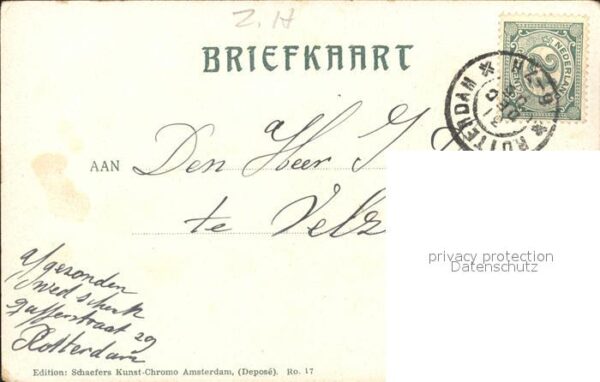 Z.H
BRIEFKAART
NEDERLAND
ROTTERDAM
AAN Den Heer J.
te Velz
privacy protection
Datenschutz
afgezonden
Rotterdam
Edition: Schaefers Kunst-Chromo Amsterdam, (Deposé). Ro. 17